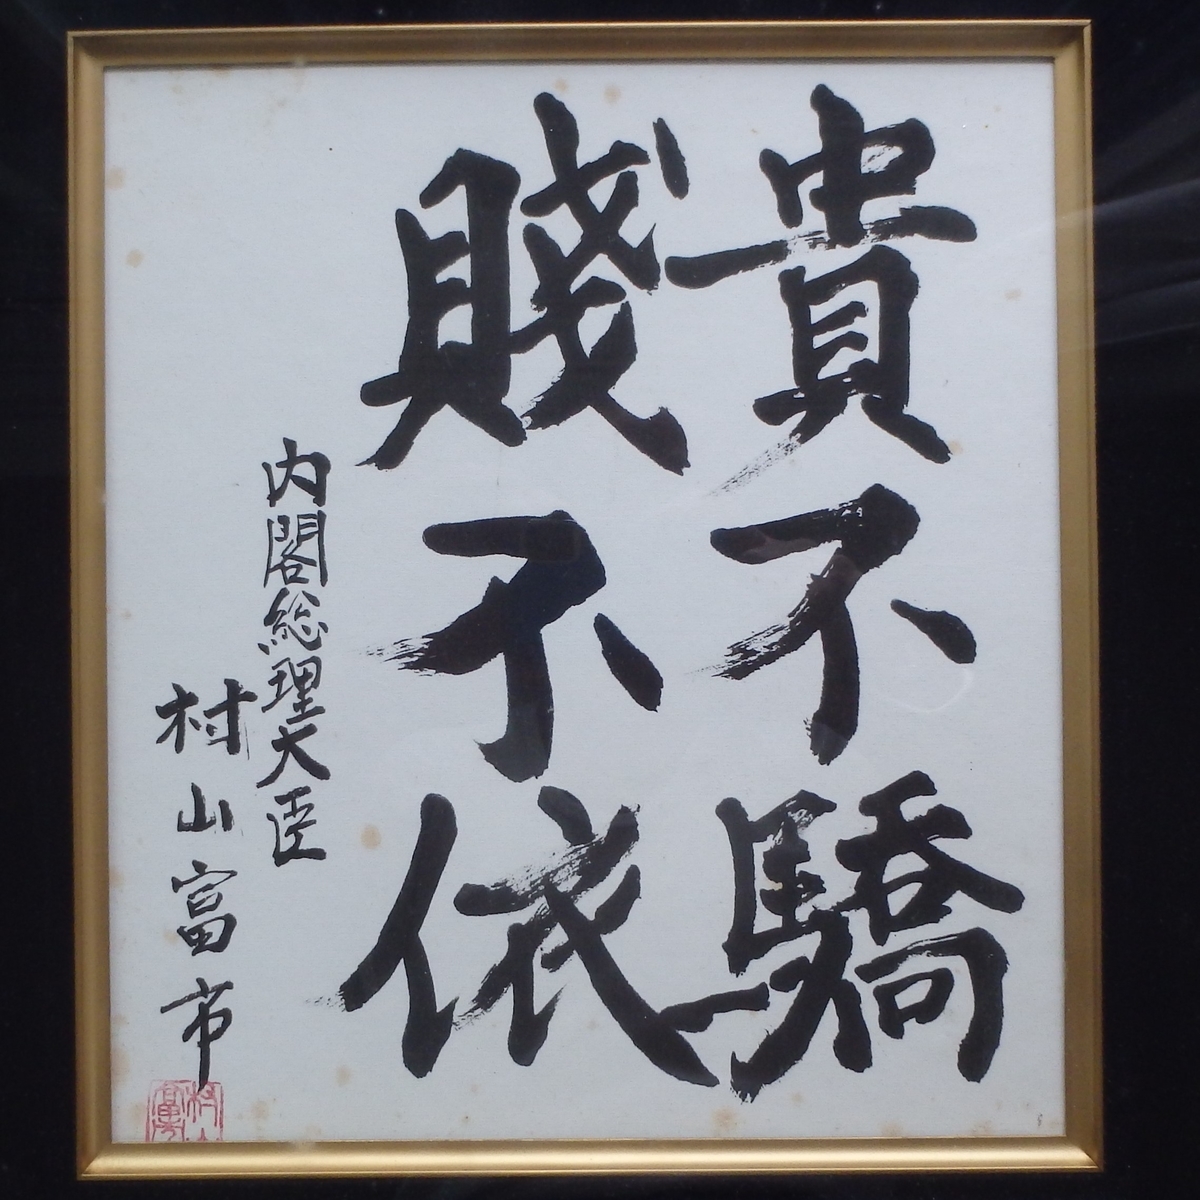 貴不驕
賤不依
内閣総理大臣
村山富市